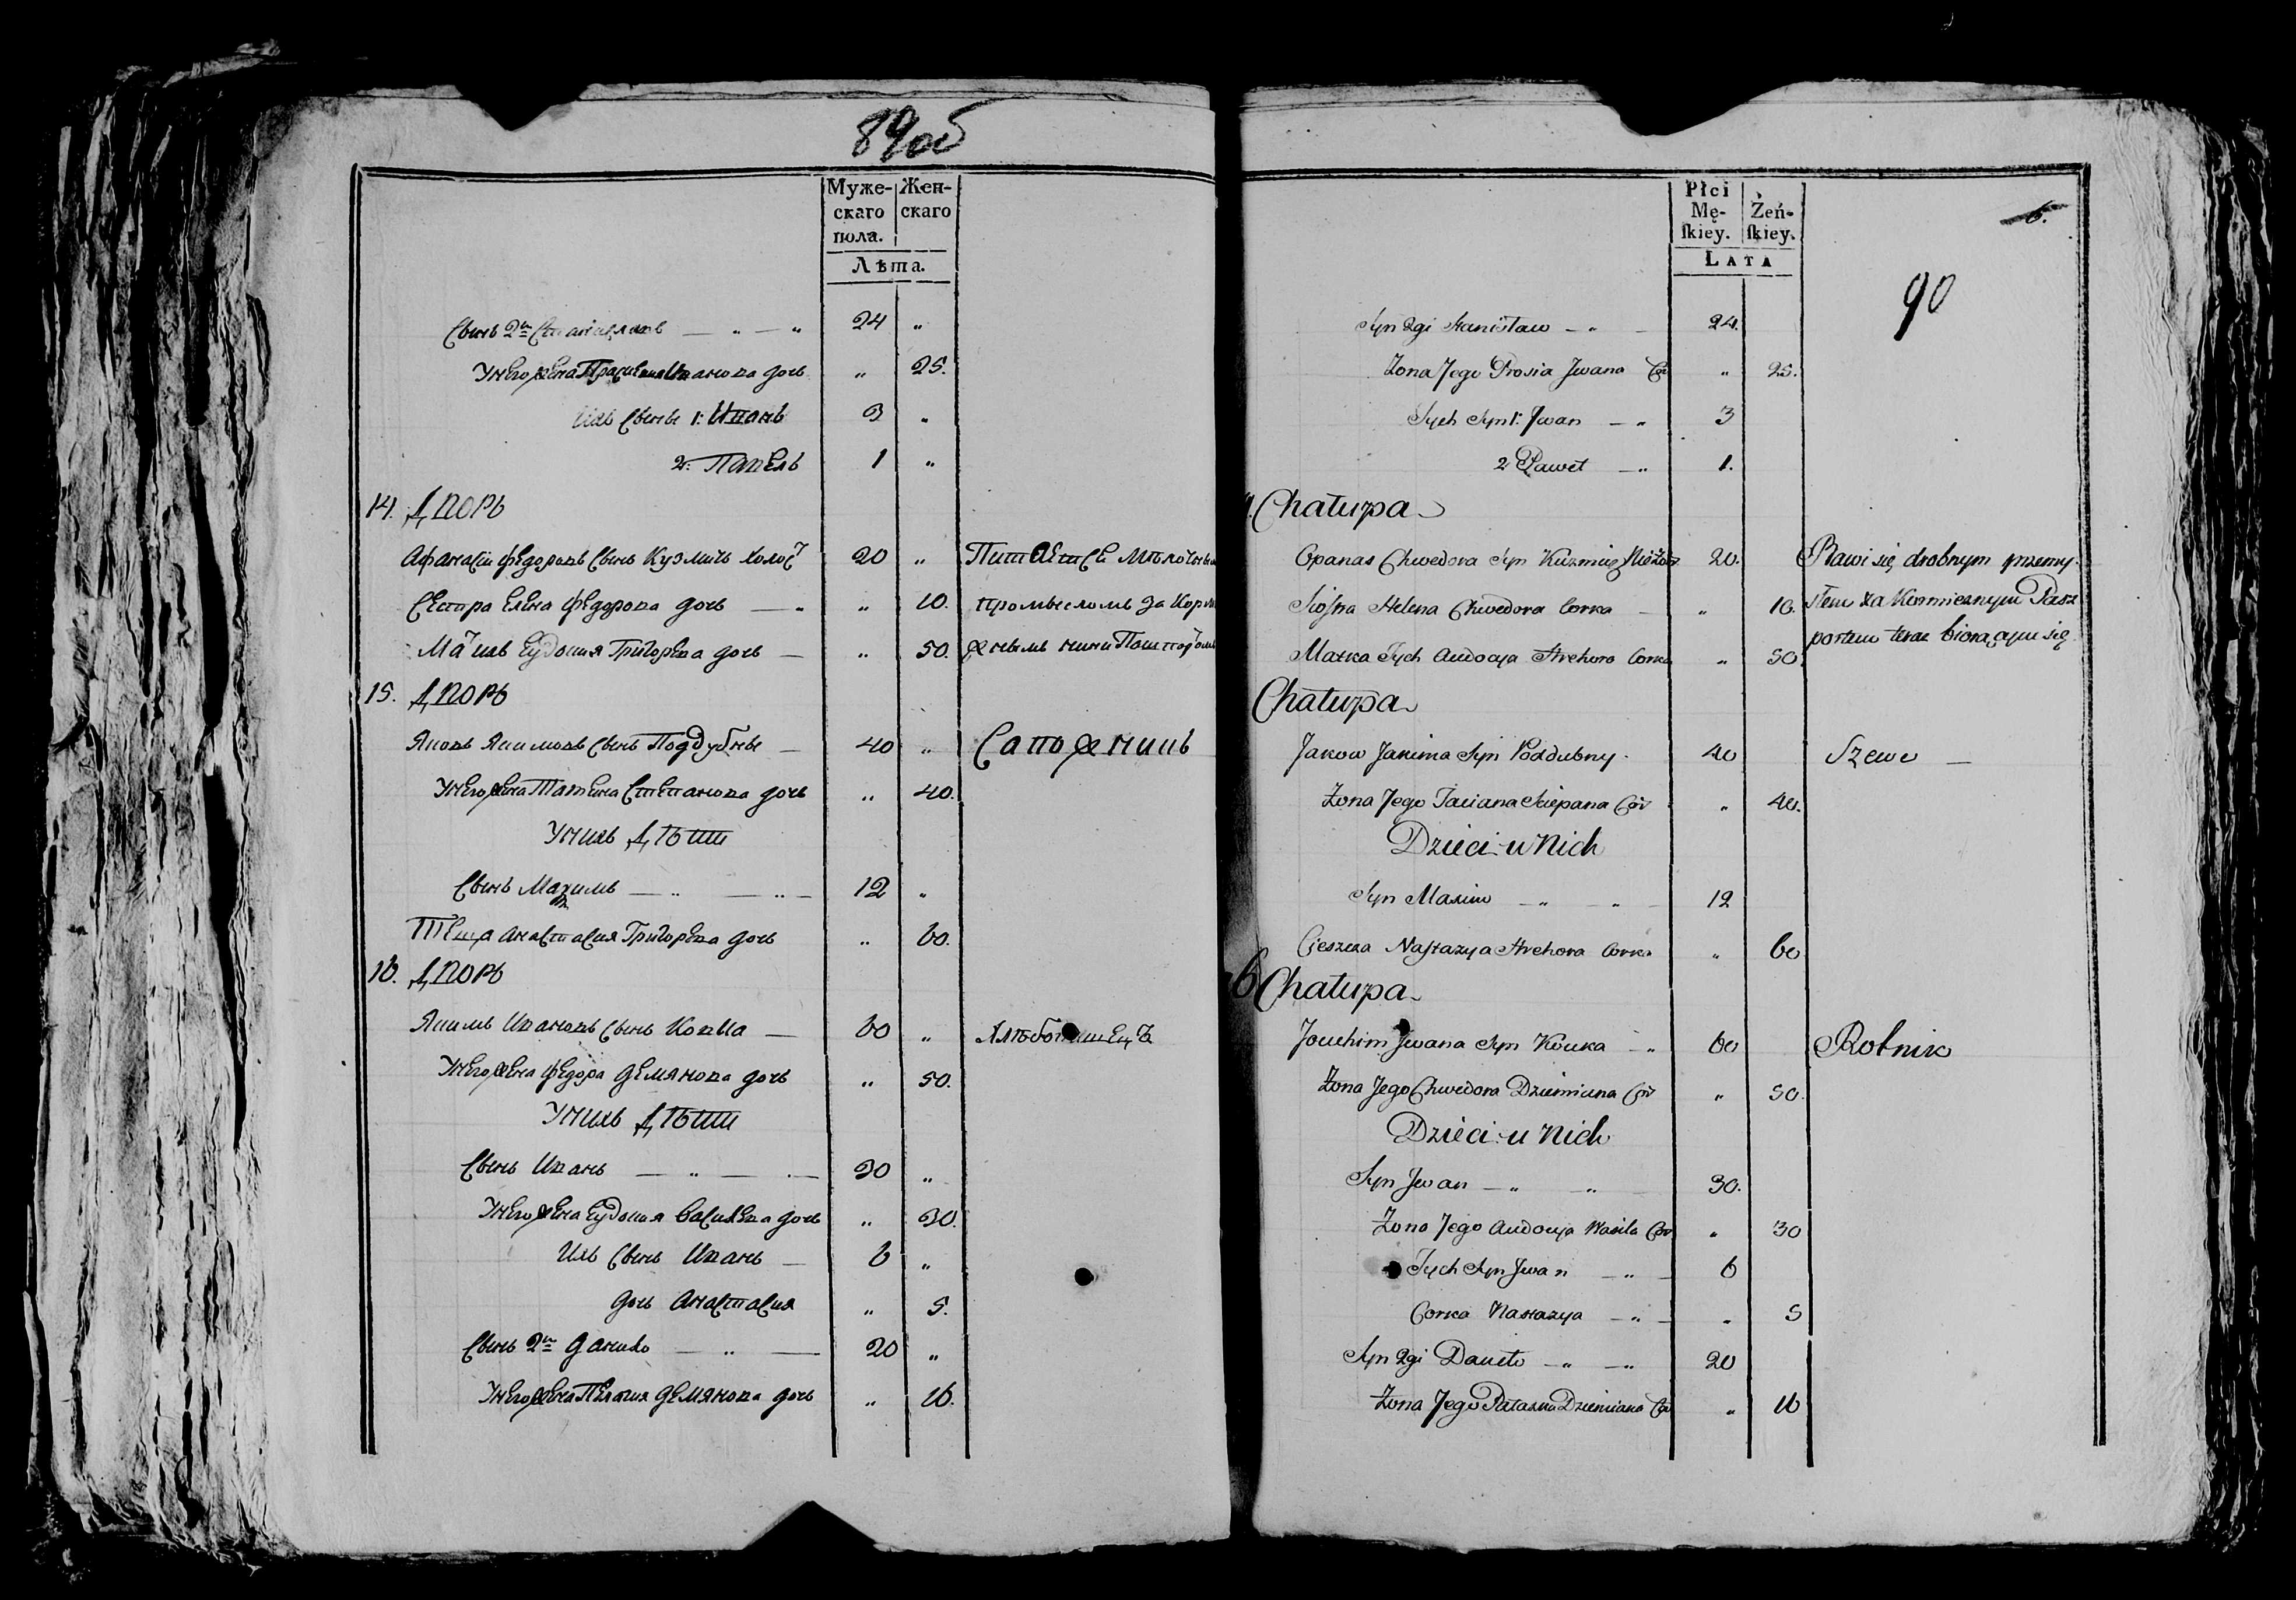 89об
Муже-
скаго
пола.
Жен-
скаго
Лѣта.
Сынъ 2й Станиславъ — „ — „ 24 „
У него жена Прасковия Иванова дочь „ 25.
Ихъ Сынъ 1: Иванъ 3 „
2: Павелъ 1 „
14. Дворъ
Афанасій Федоровъ Сынъ Кузмичъ холост 20 „ Питается мѣлочнымъ
Сестра Елена Федорова дочь — „ „ 10. промысломъ за
Мать ихъ Еудокия Григорева дочь — „ 50.
15. Дворъ
Яковъ Якимовъ Сынъ Поддубны — 40 „ Сапожникъ
У него жена Татьяна Степанова дочь „ 40.
У нихъ Дѣти
Сынъ Максимъ — „ — „ — 12 „
Теща Анастасия Григорева дочь „ 60.
16. Дворъ
Якимъ Ивановъ Сынъ Ковка — 60 „ Хлѣбопашецъ
У него жена Федора Демянова дочь „ 50.
У нихъ Дѣти
Сынъ Иванъ — „ — „ — 30 „
У него жена Еудокия Василева дочь „ 30.
Ихъ Сынъ Иванъ — 6 „
дочь Анастасия „ 5.
Сынъ 2й Данило — „ — 20 „
У него жена Пелагия Демянова дочь „ 16.
Płci
Mę-
ſkiey.
Żeń-
ſkiey.
LATA
6.
90
Syn 2gi Stanisław — „ — 24.
Żona Jego Prosia Jwana Cór „ 25.
Jych Syn 1: Jwan — „ 3
2 Paweł — „ 1.
Chałupa
Opanas Chwedora Syn Kuzmicz Nieżon 20. Bawi się drobnym przemy-
Siostra Helena Chwedora Corka — „ 10. słem za Karmiesznym Pasz
Matka Jych Audocya Hrehora Corka „ 50 portem teraz biorącym się
Chałupa
Jakow Jakima Syn Poddubny. 40 Szewc —
Żona Jego Taciana Sciepana Cór „ 40.
Dzieci u Nich
Syn Maxim — „ — „ — 12
Cieszcza Nastazya Hrehora Corka „ 60
6 Chałupa
Joachim Jwana Syn Kowka — „ 60 Rolnik
Żona Jego Chwedora Dziemiana Cór „ 50.
Dzieci u Nich
Syn Jwan — „ „ 30.
Żona Jego Audocya Wasila Cór „ 30
Jych Syn Jwan — „ — 6
Corka Nastazya — „ — „ 5
Syn 2gi Daniło — „ — „ 20
Żona Jego Dziemiana Cór „ 16